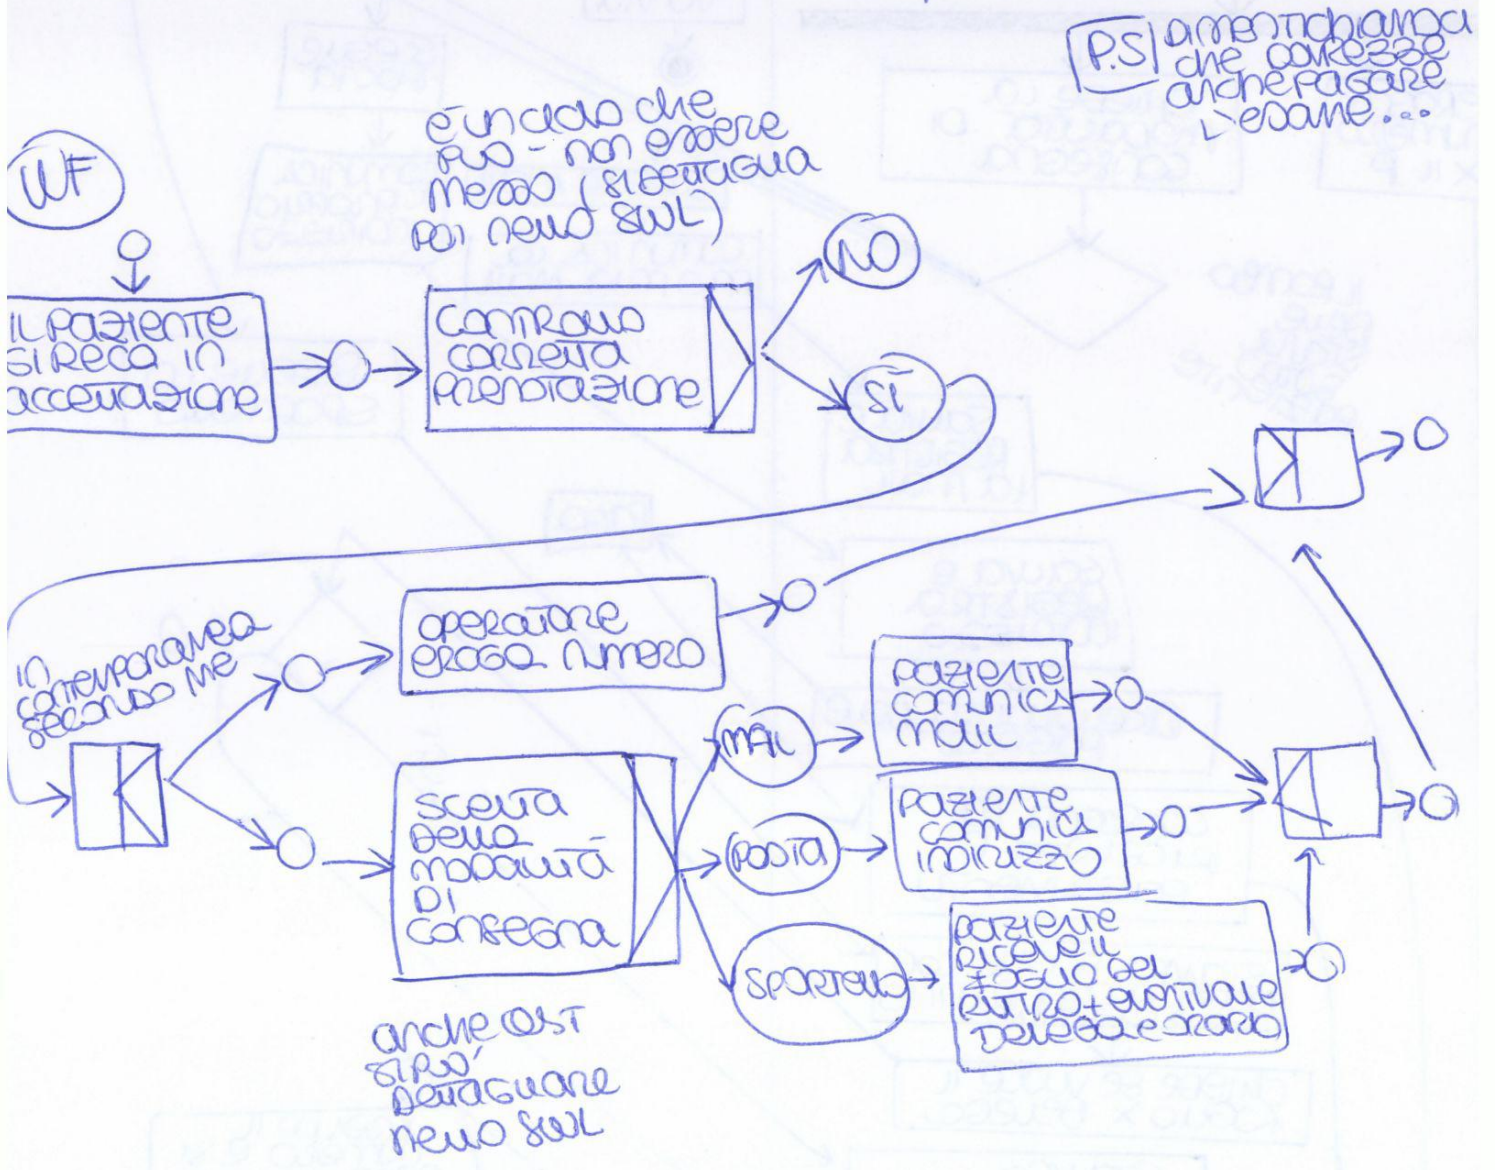 P.S
dimentichiamoci
che dovrebbe
anche pagare
l'esame...
WF
è un ciclo che
può - non essere
messo (si dettaglia
poi nello SWL)
IL PAZIENTE
SI RECA IN
accettazione
CONTROLLO
CORRETTA
PRENOTAZIONE
NO
SI
in
contemporanea
secondo me
OPERATORE
EROGA NUMERO
SCELTA
DELLA
MODALITÀ
DI
CONSEGNA
MAIL
PAZIENTE
COMUNICA
MAIL
POSTA
PAZIENTE
COMUNICA
INDIRIZZO
SPORTELLO
PAZIENTE
RICEVE IL
FOGLIO DEL
RITIRO + EVENTUALE
DELEGA E ORARIO
anche QST
SI PUÒ
DETTAGLIARE
nello SWL